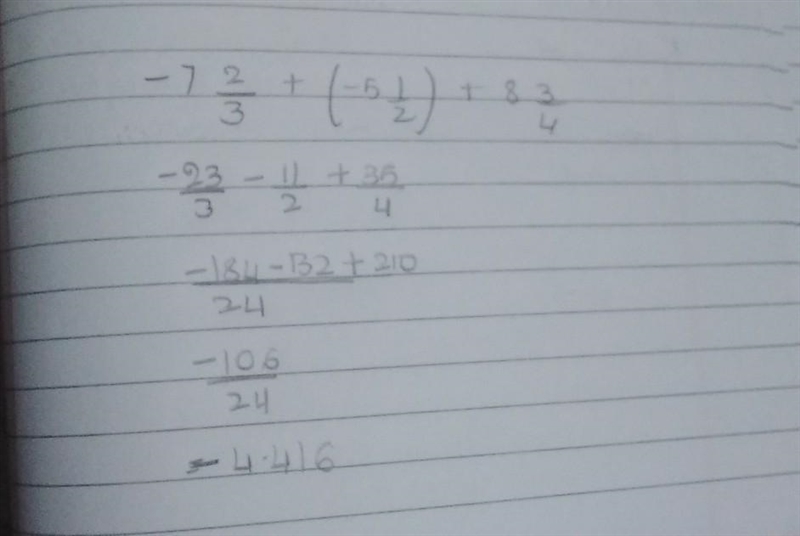 -7 2/3 + (-5 1/2) + 8 3/4
-23/3 - 11/2 + 35/4
-184-132+210/24
-106/24
-4.416